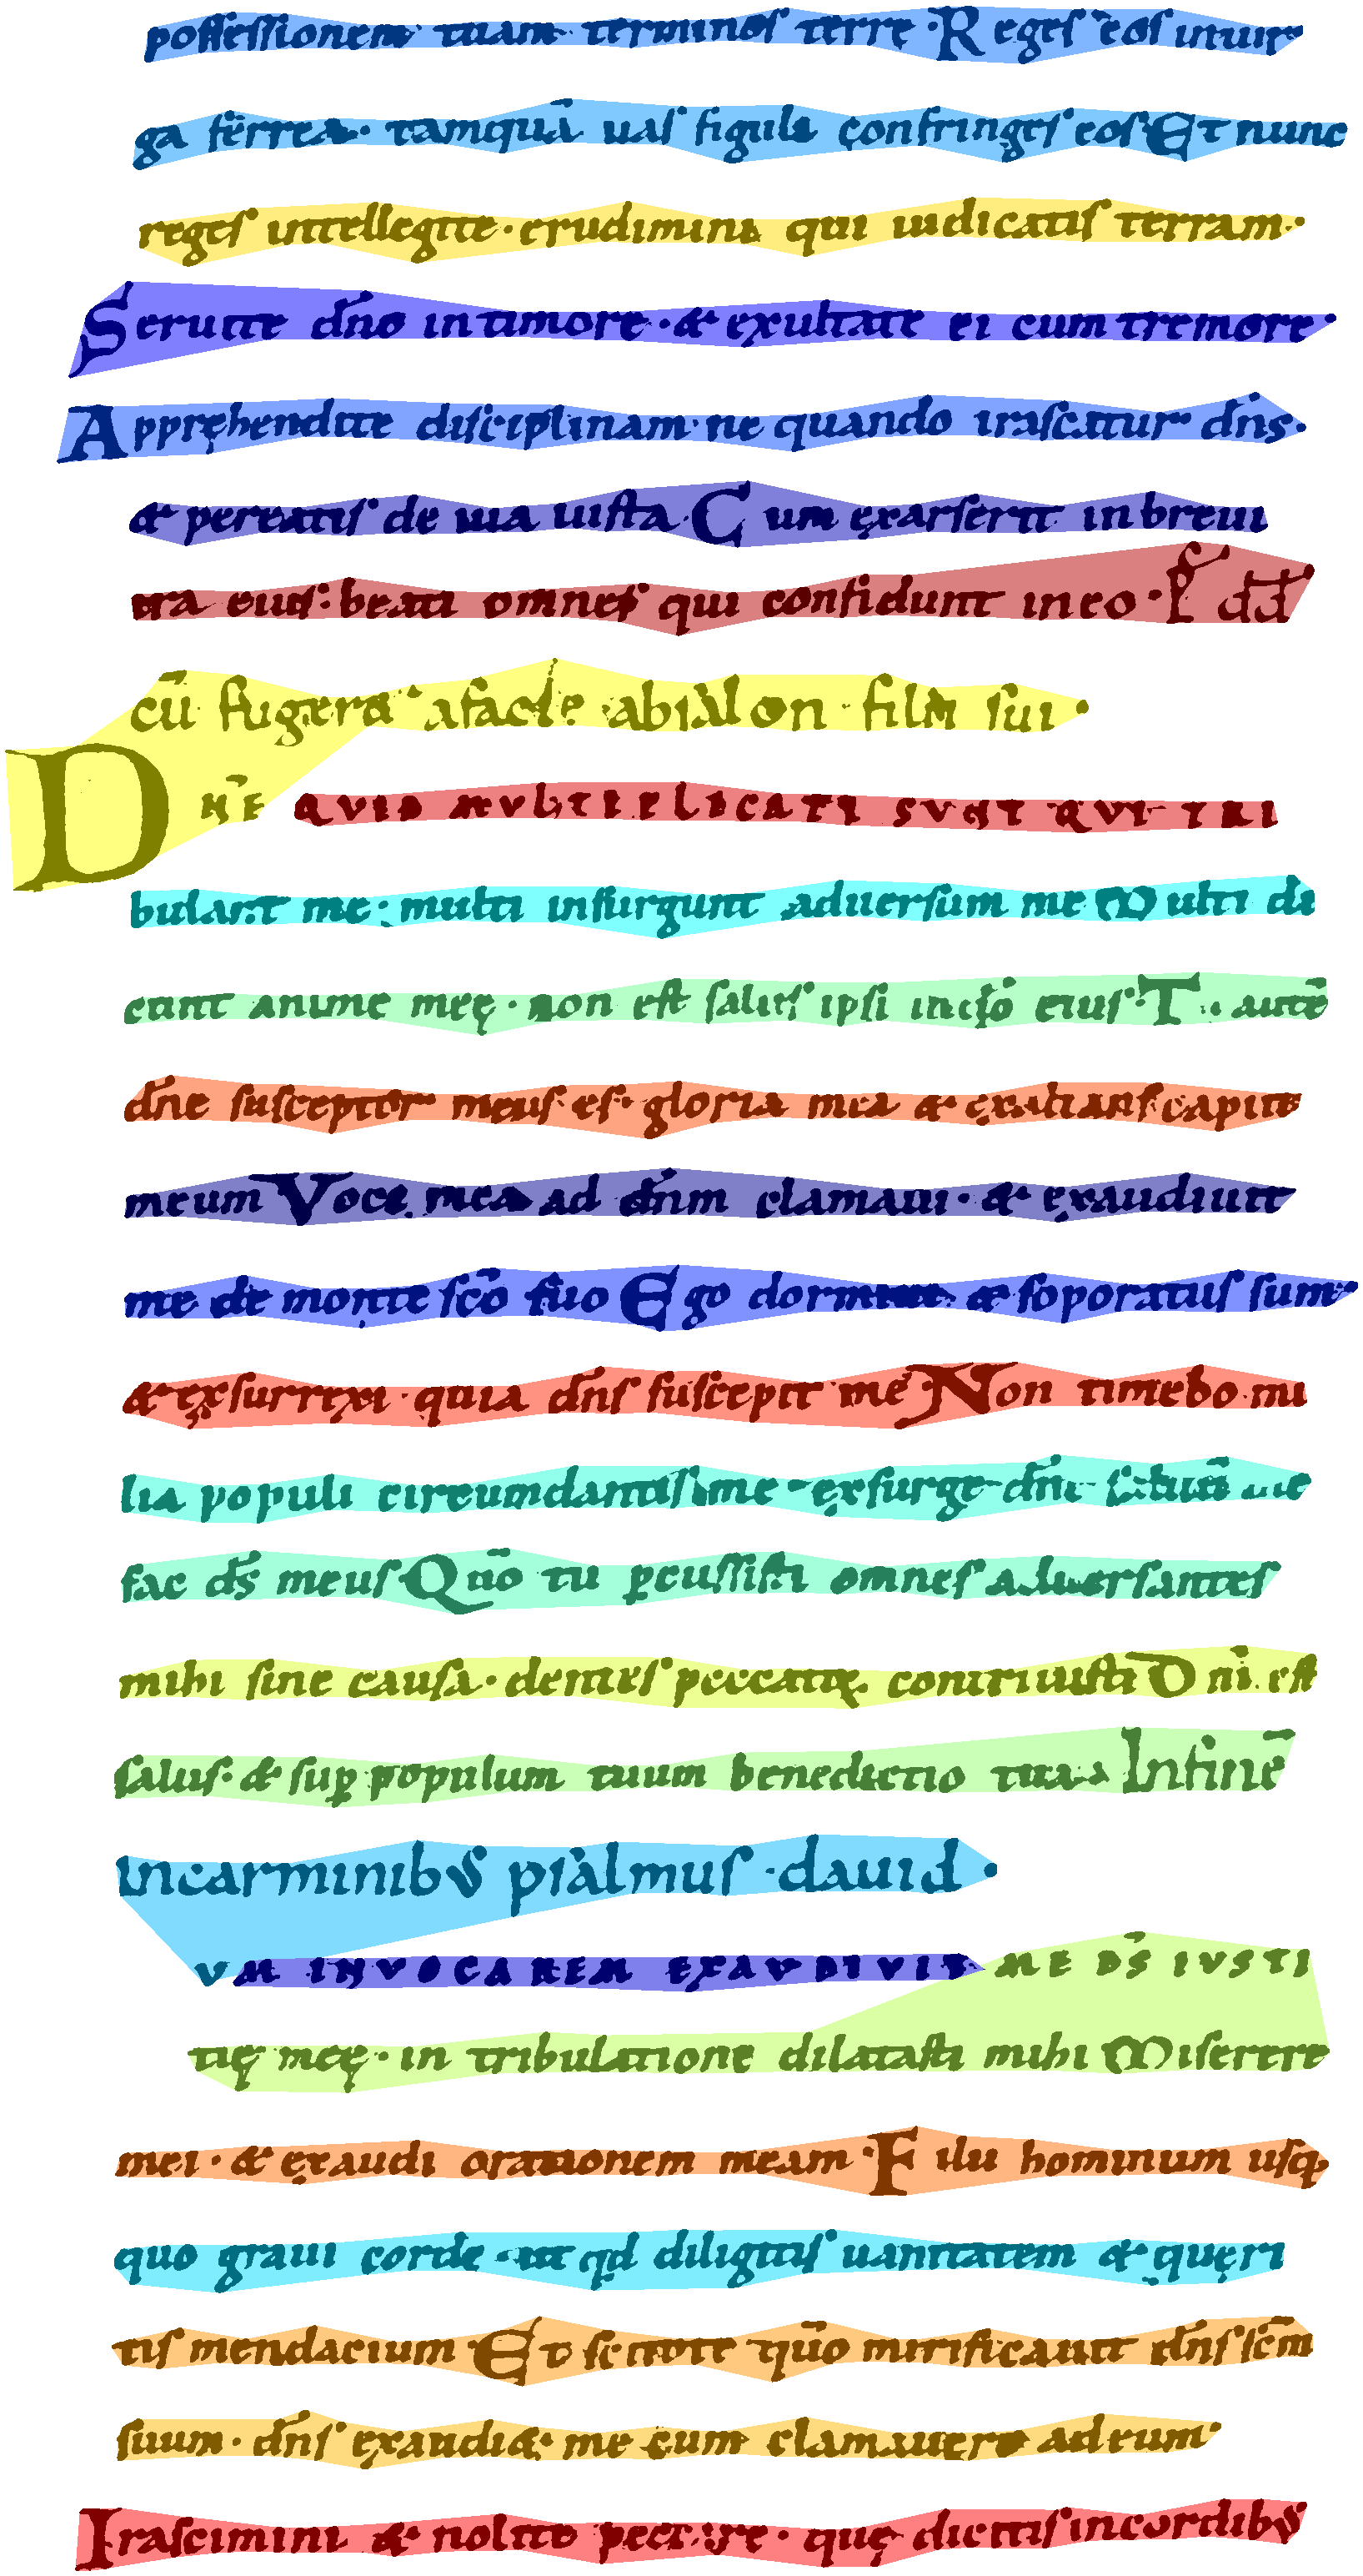 possessionem tuam terminos terrę · Reges eos inuir
ga ferrea · tamquā uas figuli confringes eos · Et nunc
reges intellegite · erudimini qui iudicatis terram ·
Seruite dn̄o in timore · & exultate ei cum tremore ·
Appręhendite disciplinam · ne quando irascatur dn̄s ·
& pereatis de uia iusta · Cum exarserit in breui
ira eius : beati omnes qui confidunt in eo · Ps dd̄
cū fugeret a facie abisalon filii sui ·
DNĒ QVID MVLTIPLICATI SVNT QVI TRI
bulant me : multi insurgunt aduersum me Multi di
cunt anime meę · non est salus ipsi in dō eius · Tu autē
dn̄e susceptor meus es · gloria mea & exaltans caput
meum Voce mea ad dn̄m clamaui · & exaudiuit
me de monte scō suo Ego dormiui & soporatus sum
& exsurrexi · quia dn̄s suscepit me Non timebo mi
lia populi circumdantis me · exsurge dn̄e saluū me
fac ds̄ meus Qnō tu ꝑcussisti omnes aduersantes
mihi sine causa · dentes peccatoꝝ contriuisti Dn̄i est
salus · & suꝑ populum tuum benedictio tua · In finē
in carminibus psalmus · dauid ·
VM INVOCAREM EXAVDIVIT ME DS̄ IVSTI
tię meę · in tribulatione dilatasti mihi Miserere
mei · & exaudi orationem meam · Filii hominum usq;
quo graui corde · ut qd diligitis uanitatem & quęri
tis mendacium Et scitote qnō mirificauit dn̄s scm̄
suum · dn̄s exaudi& me cum clamauero ad eum
Irascimini & nolite peccare · quę dicitis in cordibus